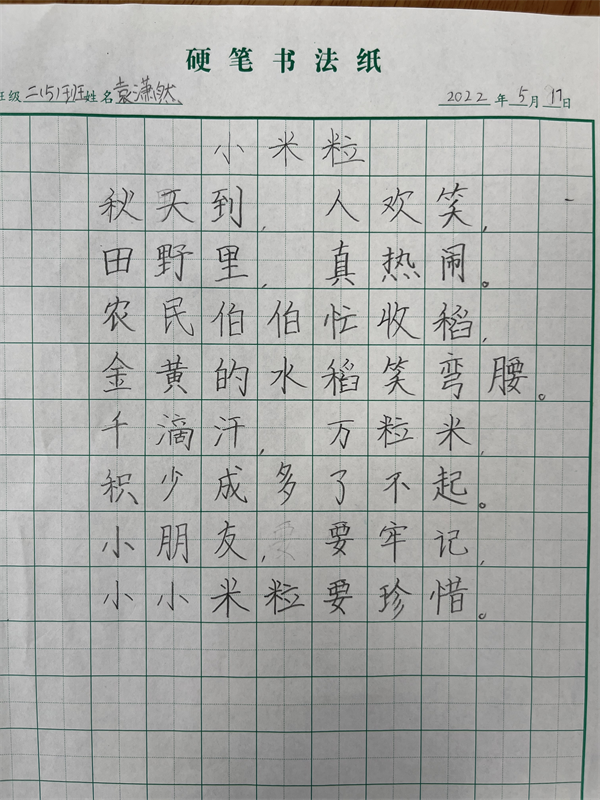 硬笔书法纸
班级 二(5)班 姓名 袁潇然 2022年5月17日
小米粒
秋天到,人欢笑,
田野里,真热闹。
农民伯伯忙收稻,
金黄的水稻笑弯腰。
千滴汗,万粒米,
积少成多了不起。
小朋友,要牢记,
小小米粒要珍惜。